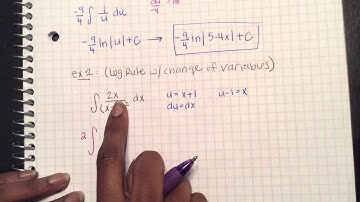 -9/4 ∫ 1/u du
du/-4 = dx
-9/4 ln|u| + C → -9/4 ln|5-4x| + C
ex 2: (Log Rule w/ change of variables)
∫ 2x/(x 2 dx u = x+1 u-1 = x
du = dx
2 ∫